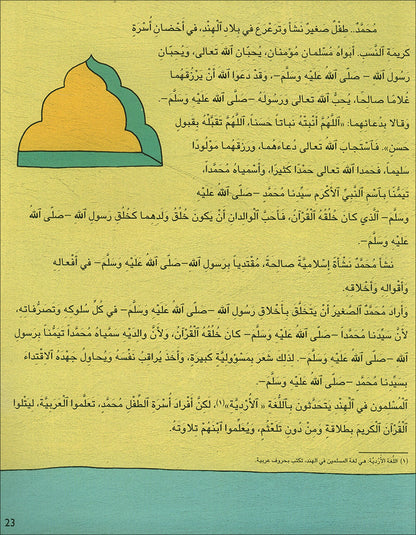 مُحَمَّدٌ.. طفْلٌ صغيرٌ نشأ وتَرعْرَعَ في بلاد الْهِنْد، في أحْضانِ أُسْرةٍ
كريمة النَّسب. أبواهُ مُسْلمانِ مُؤْمنان، يُحبَّان الله تعالى، ويُحبَّان
رسول الله –صلَّى الله عليْه وسلَّم–. وقدْ دعوا الله أنْ يرزُقهُما
غُلامًا صالحا، يُحبُّ الله تعالى ورسُولهُ –صلَّى الله عليْه وسلَّم–.
وقالا بدُعائِهما: «اللَّهُمَّ أنْبتْهُ نباتاً حَسناً، اللَّهُمَّ تقبَّلْهُ بقبول
حسنٍ». فاسْتجابَ الله تعالى دُعاءهُما، ورزقهُما موْلُودًا
سليمًا، فحمدا الله تعالى حمْدًا كثيرًا، وأسْمياهُ مُحمَّدًا،
تيمُّنًا باسْم النَّبيِّ الْأكْرم سيِّدنا مُحمَّد –صلَّى الله عليْه
وسلَّم– الَّذي كان خُلُقهُ الْقُرْآنَ، فأحبَّ الْوالدان أنْ يكون خُلُقُ ولدهما كخُلُق رسول الله –صلَّى الله
عليْه وسلَّم–.
نشأ مُحمَّدٌ نشْأةً إسْلاميَّةً صالحةً، مُقْتدياً برسُول الله –صلَّى الله عليْه وسلَّم– في أفْعاله
وأقْواله وأخْلاقِه.
وأراد مُحمَّدٌ الصَّغيرُ أنْ يتخلَّق بأخْلاق رسُول الله –صلَّى الله عليْه وسلَّم– في كُلِّ سُلوكه وتصرُّفاته،
لأنَّ سيِّدنا مُحمَّداً –صلَّى الله عليْه وسلَّم– كان خُلُقُهُ الْقُرْآن، ولأنَّ والديْه سمَّياهُ مُحمَّداً تيمُّناً برسُول
الله –صلَّى الله عليْه وسلَّم–. لذلك شعر بمسْؤوليَّةٍ كبيرةٍ، وأخذ يُراقبُ نفْسهُ ويُحاول جهْدهُ الاقْتداءَ
بسيِّدنا مُحمَّدٍ –صلَّى الله عليْه وسلَّم–.
الْمُسْلمون في الْهنْد يتحدَّثُون باللُّغة «الْأُرْديَّة»(١)، لكنَّ أفْراد أُسْرة الطِّفْل مُحمَّدٍ، تعلَّموا الْعربيَّة، ليتْلُوا
الْقُرْآن الْكريم بطلاقة ومنْ دُون تلعْثُم، ويُعلِّموا ابْنهُمْ تلاوتهُ.
(١) اللُّغة الأرْديَّة: هي لغة المسلمين في الهند، تكتب بحروف عربية.
23